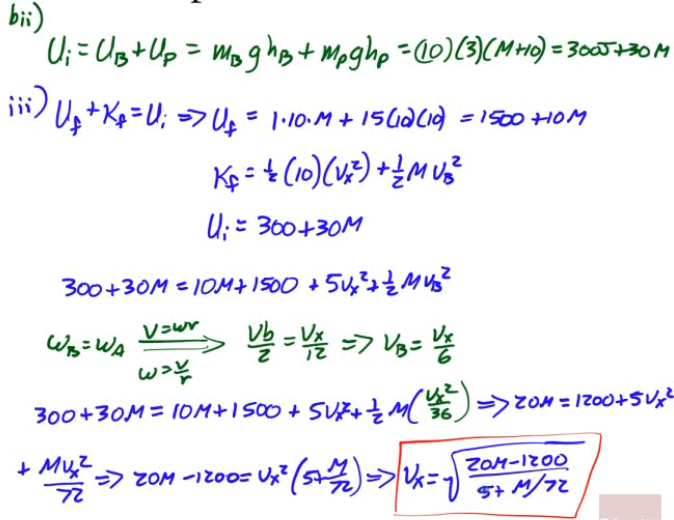 bii)
U_i = U_B + U_P = m_B g h_B + m_p g h_p = (10)(3)(M+10) = 300J+30M
iii) U_f + K_f = U_i => U_f = 1·10·M + 15(10)(10) = 1500 + 10M
K_f = ½(10)(V_x²) + ½ M V_B²
U_i = 300 + 30M
300 + 30M = 10M + 1500 + 5V_x² + ½ M V_B²
ω_B = ω_A V=ωr ω=V/r => Vb/2 = V_x/12 => V_B = V_x/6
300 + 30M = 10M + 1500 + 5V_x² + ½ M(V_x²/36) => 20M = 1200 + 5V_x²
+ MV_x²/72 => 20M - 1200 = V_x²(5 + M/72) => V_x = √((20M-1200)/(5 + M/72))